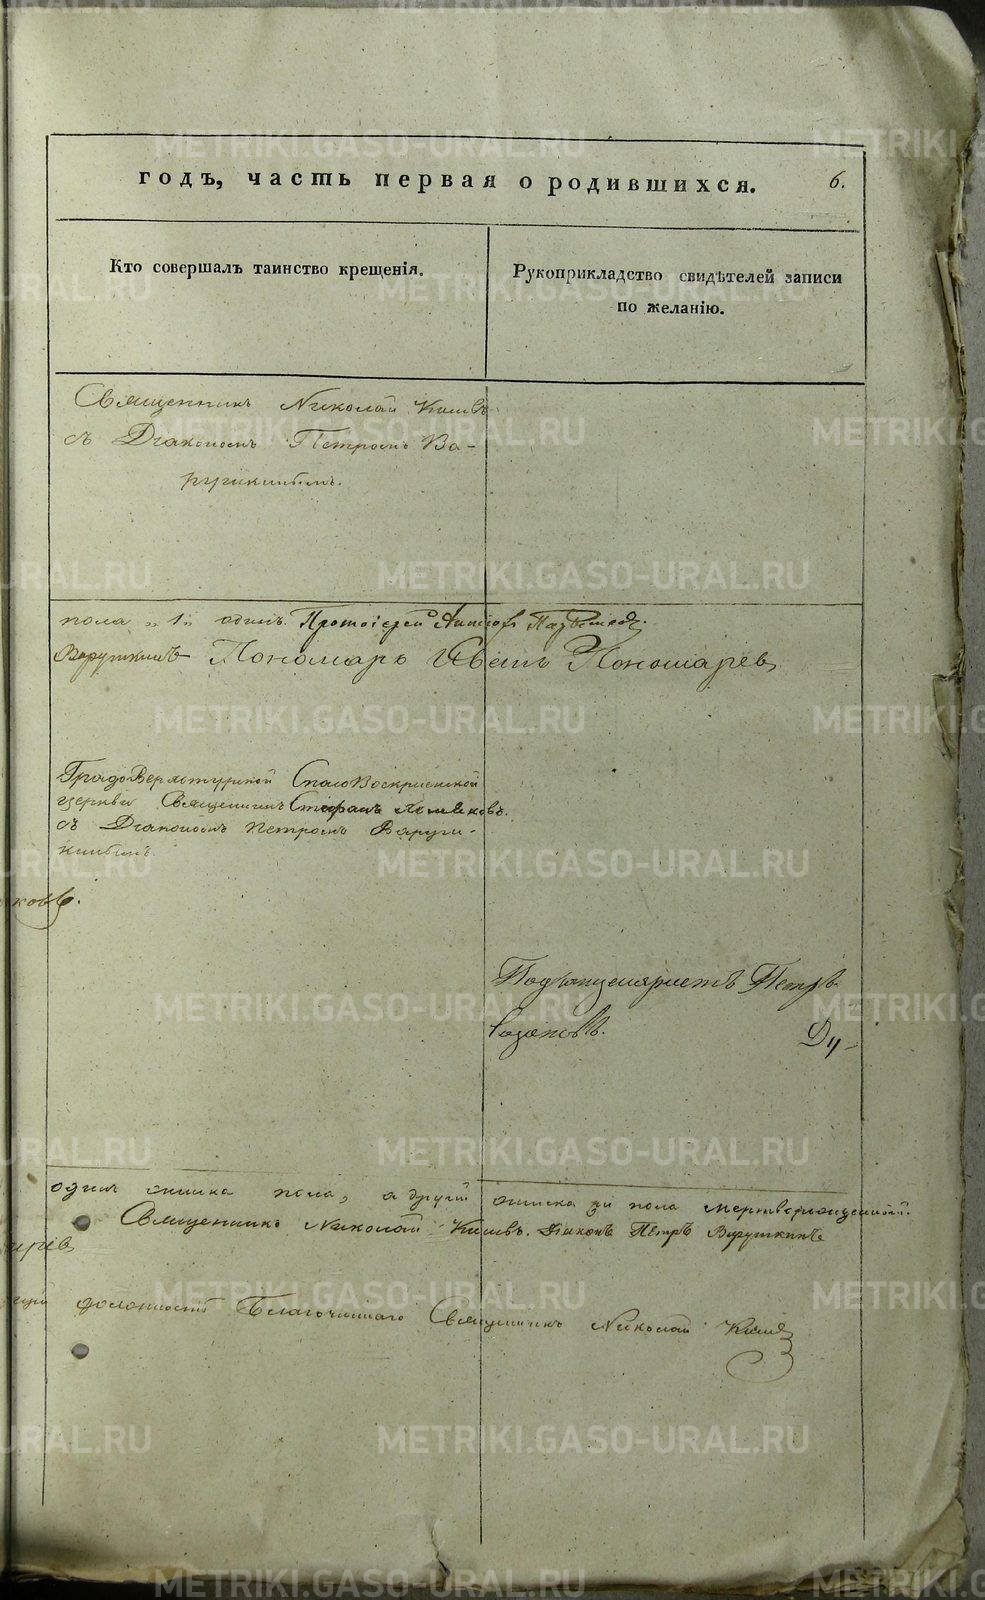 годъ, часть первая о родившихся. 6.
Кто совершалъ таинство крещенія.
Рукоприкладство свидѣтелей записи
по желанію.
Священникъ Николай
съ Діакономъ Петромъ Ва-
рушкинымъ.
пола „1„ одинъ. Протоіерей
Варушкинъ Пономарь Иванъ Пономарев
ГрадоВерхотурской СпасоВоскресенской
церкви Священникъ Стефанъ
съ Діакономъ Петромъ Варуш-
кинымъ.
ковъ.
Подканцеляристъ Петръ
Казаковъ. Ду-
одинъ пола, а другой пола
Священникъ Николай Діаконъ Петръ Варушкинъ
должность Благочиннаго Священникъ Николай
METRIKI.GASO-URAL.RU